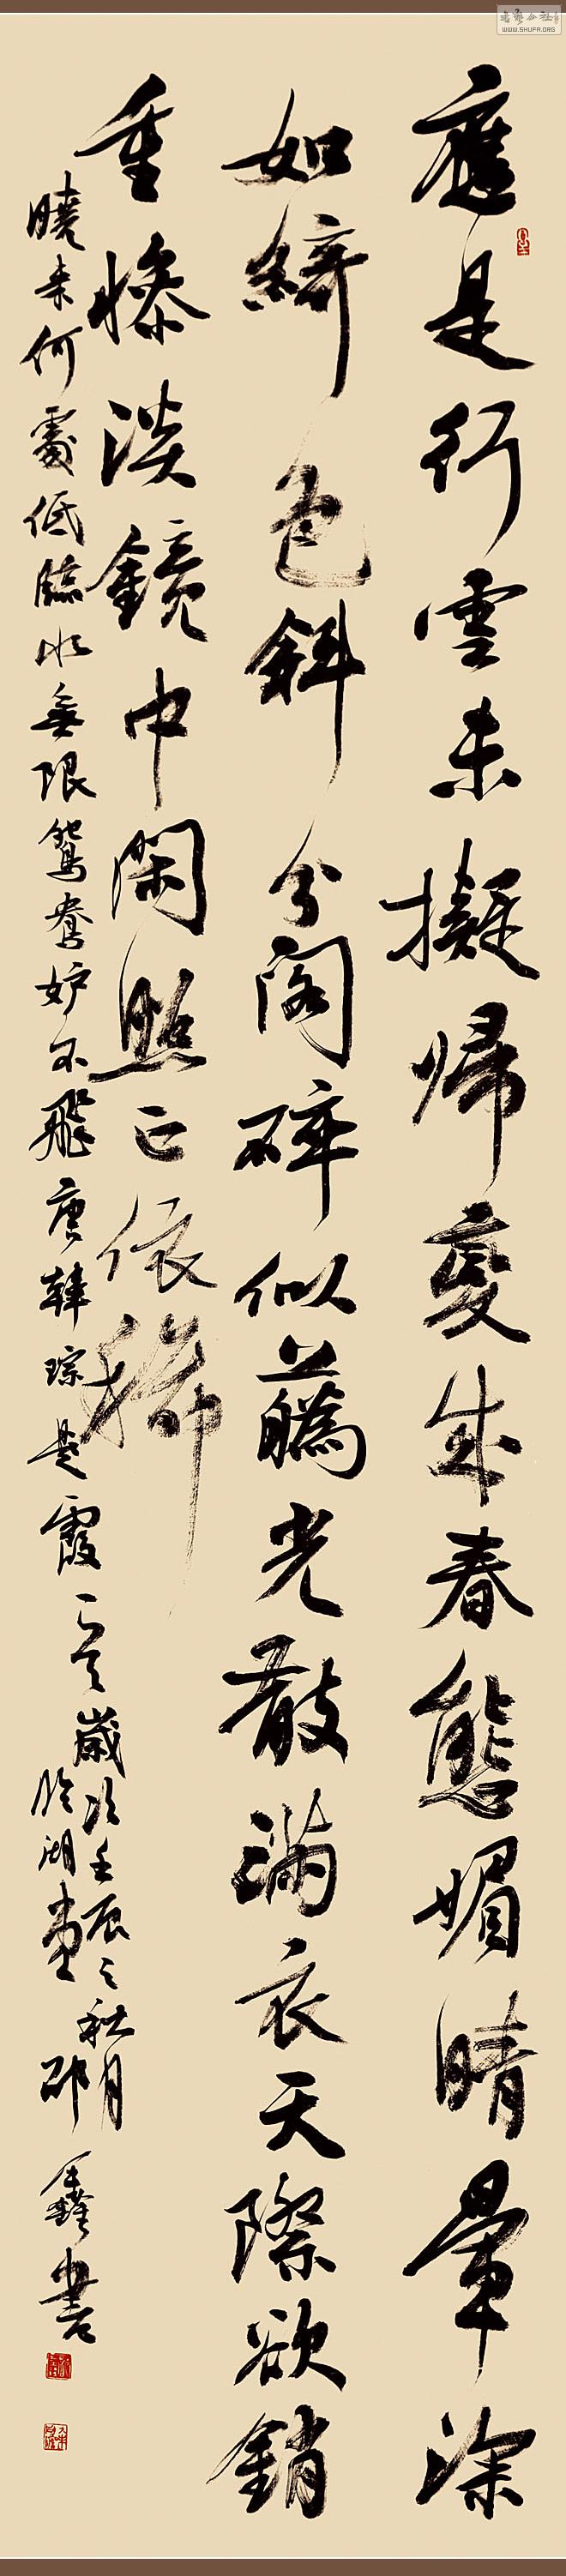 應是行雲未擬歸變成春態媚晴暈深
如綺色斜分閣碎似蘤光散滿衣天際欲銷
重慘淡鏡中閑照正依稀
曉來何處低臨水無限鴛鴦妒不飛唐韓琮是霞
歲次壬辰之秋月
於湖
邵鑫書
WWW.SHUFA.ORG